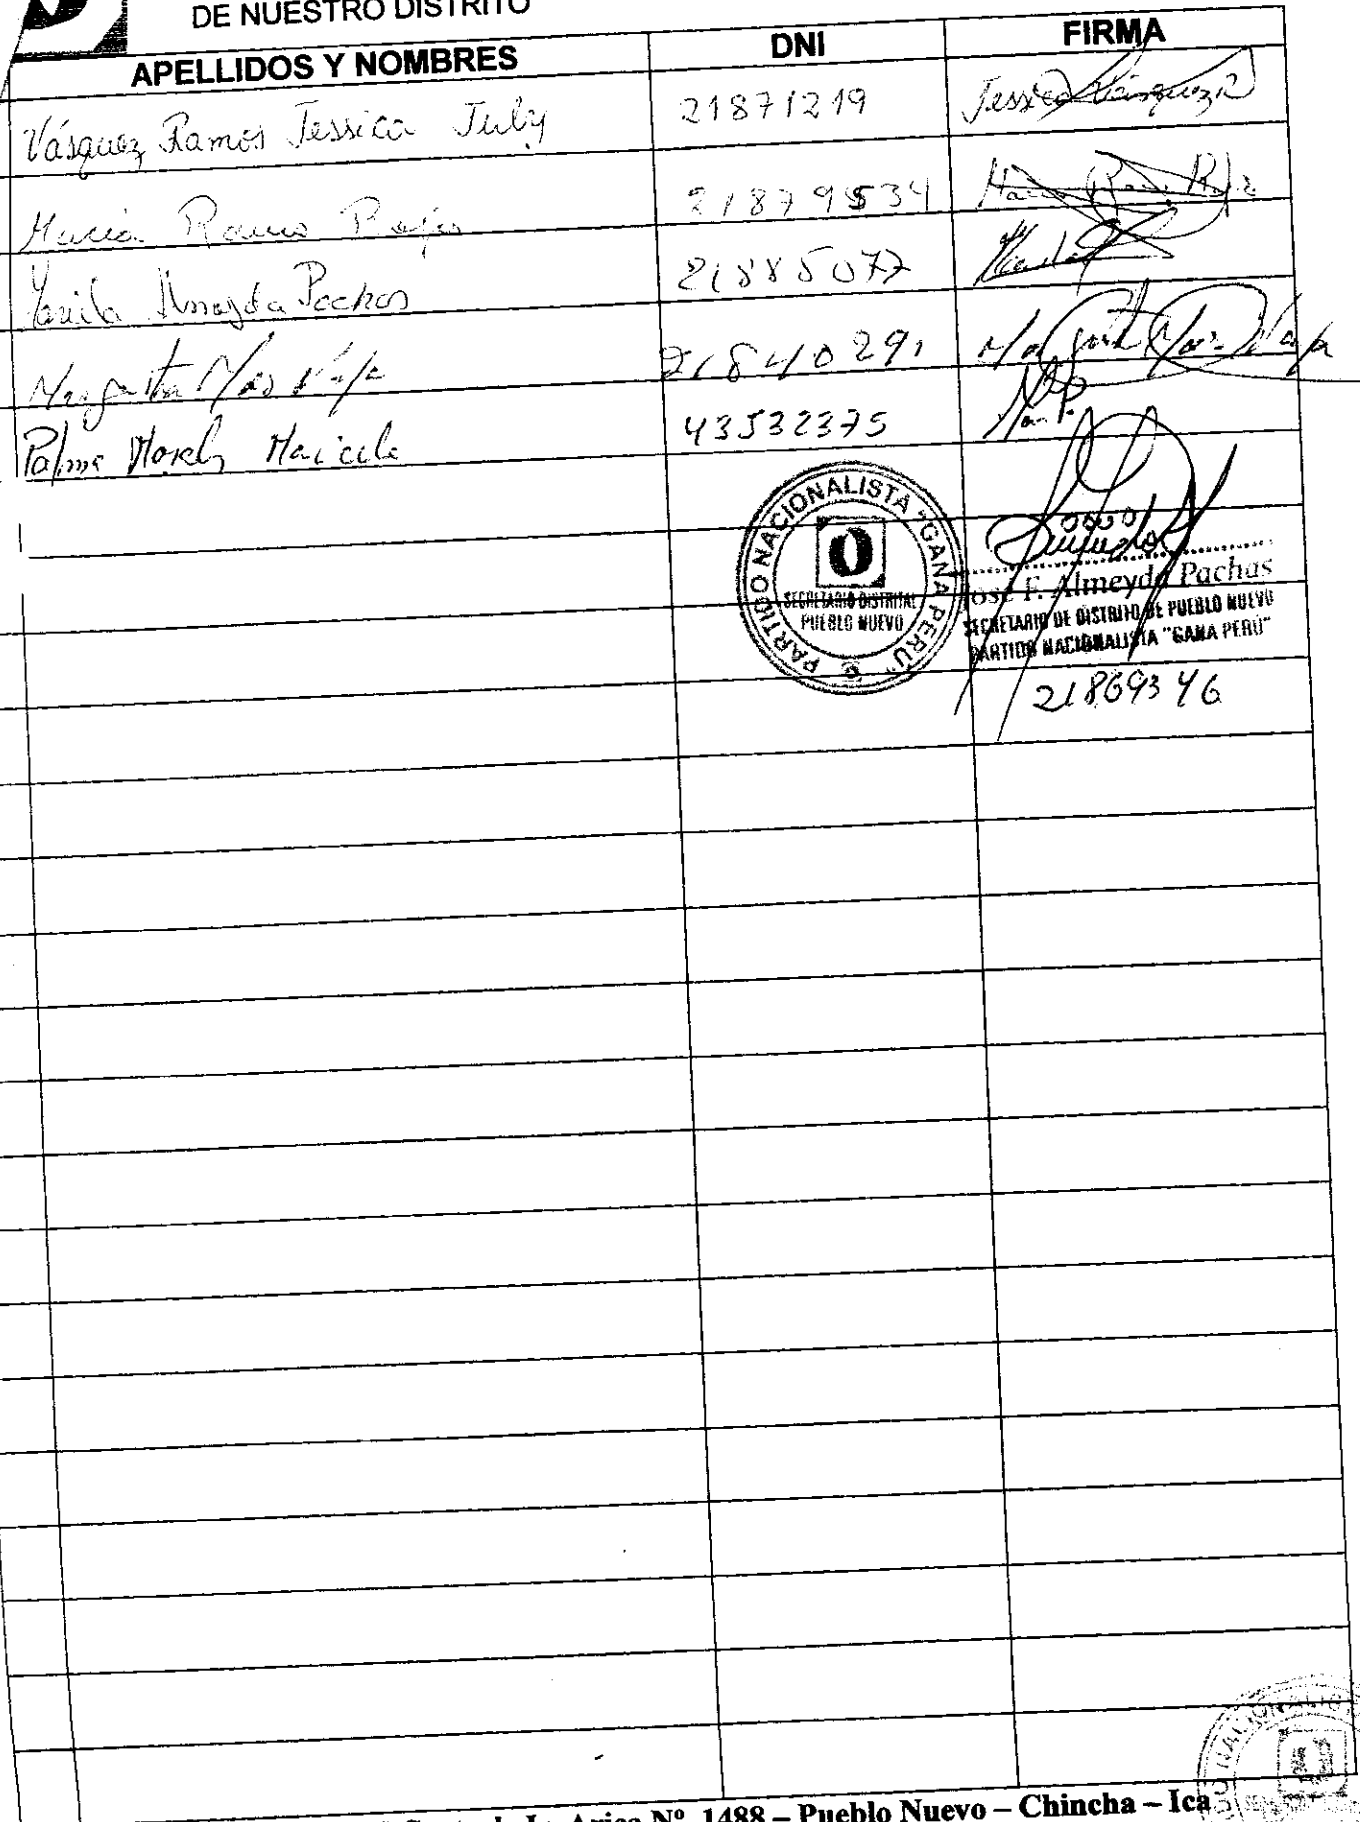 DE NUESTRO DISTRITO
APELLIDOS Y NOMBRES DNI FIRMA
Vásquez Ramos Jessica July 21871219 Jessica Vásquez R
Maria Ramos Rojas 218795534
Almeyda Pachas 21885077
Margarita 21840291
Palma Marcela 43532375
PARTIDO NACIONALISTA "GANA PERU"
SECRETARIO DISTRITAL
PUEBLO NUEVO
José F. Almeyda Pachas
SECRETARIO DE DISTRITO DE PUEBLO NUEVO
PARTIDO NACIONALISTA "GANA PERÚ"
21869346
Arica Nº 1488 – Pueblo Nuevo – Chincha – Ica